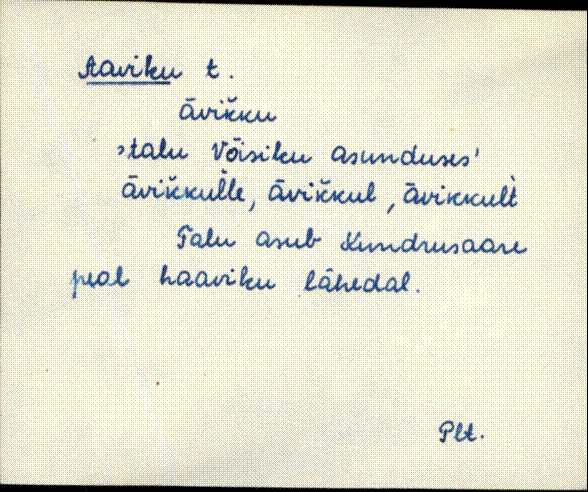 Aaviku t.
āvik̆ku
›talu Võisiku asunduses'
āvik̆kul̆le, āvik̆kul, āvikkul̀t
Talu asub Kundrusaare
peal haaviku lähedal.
Plt.